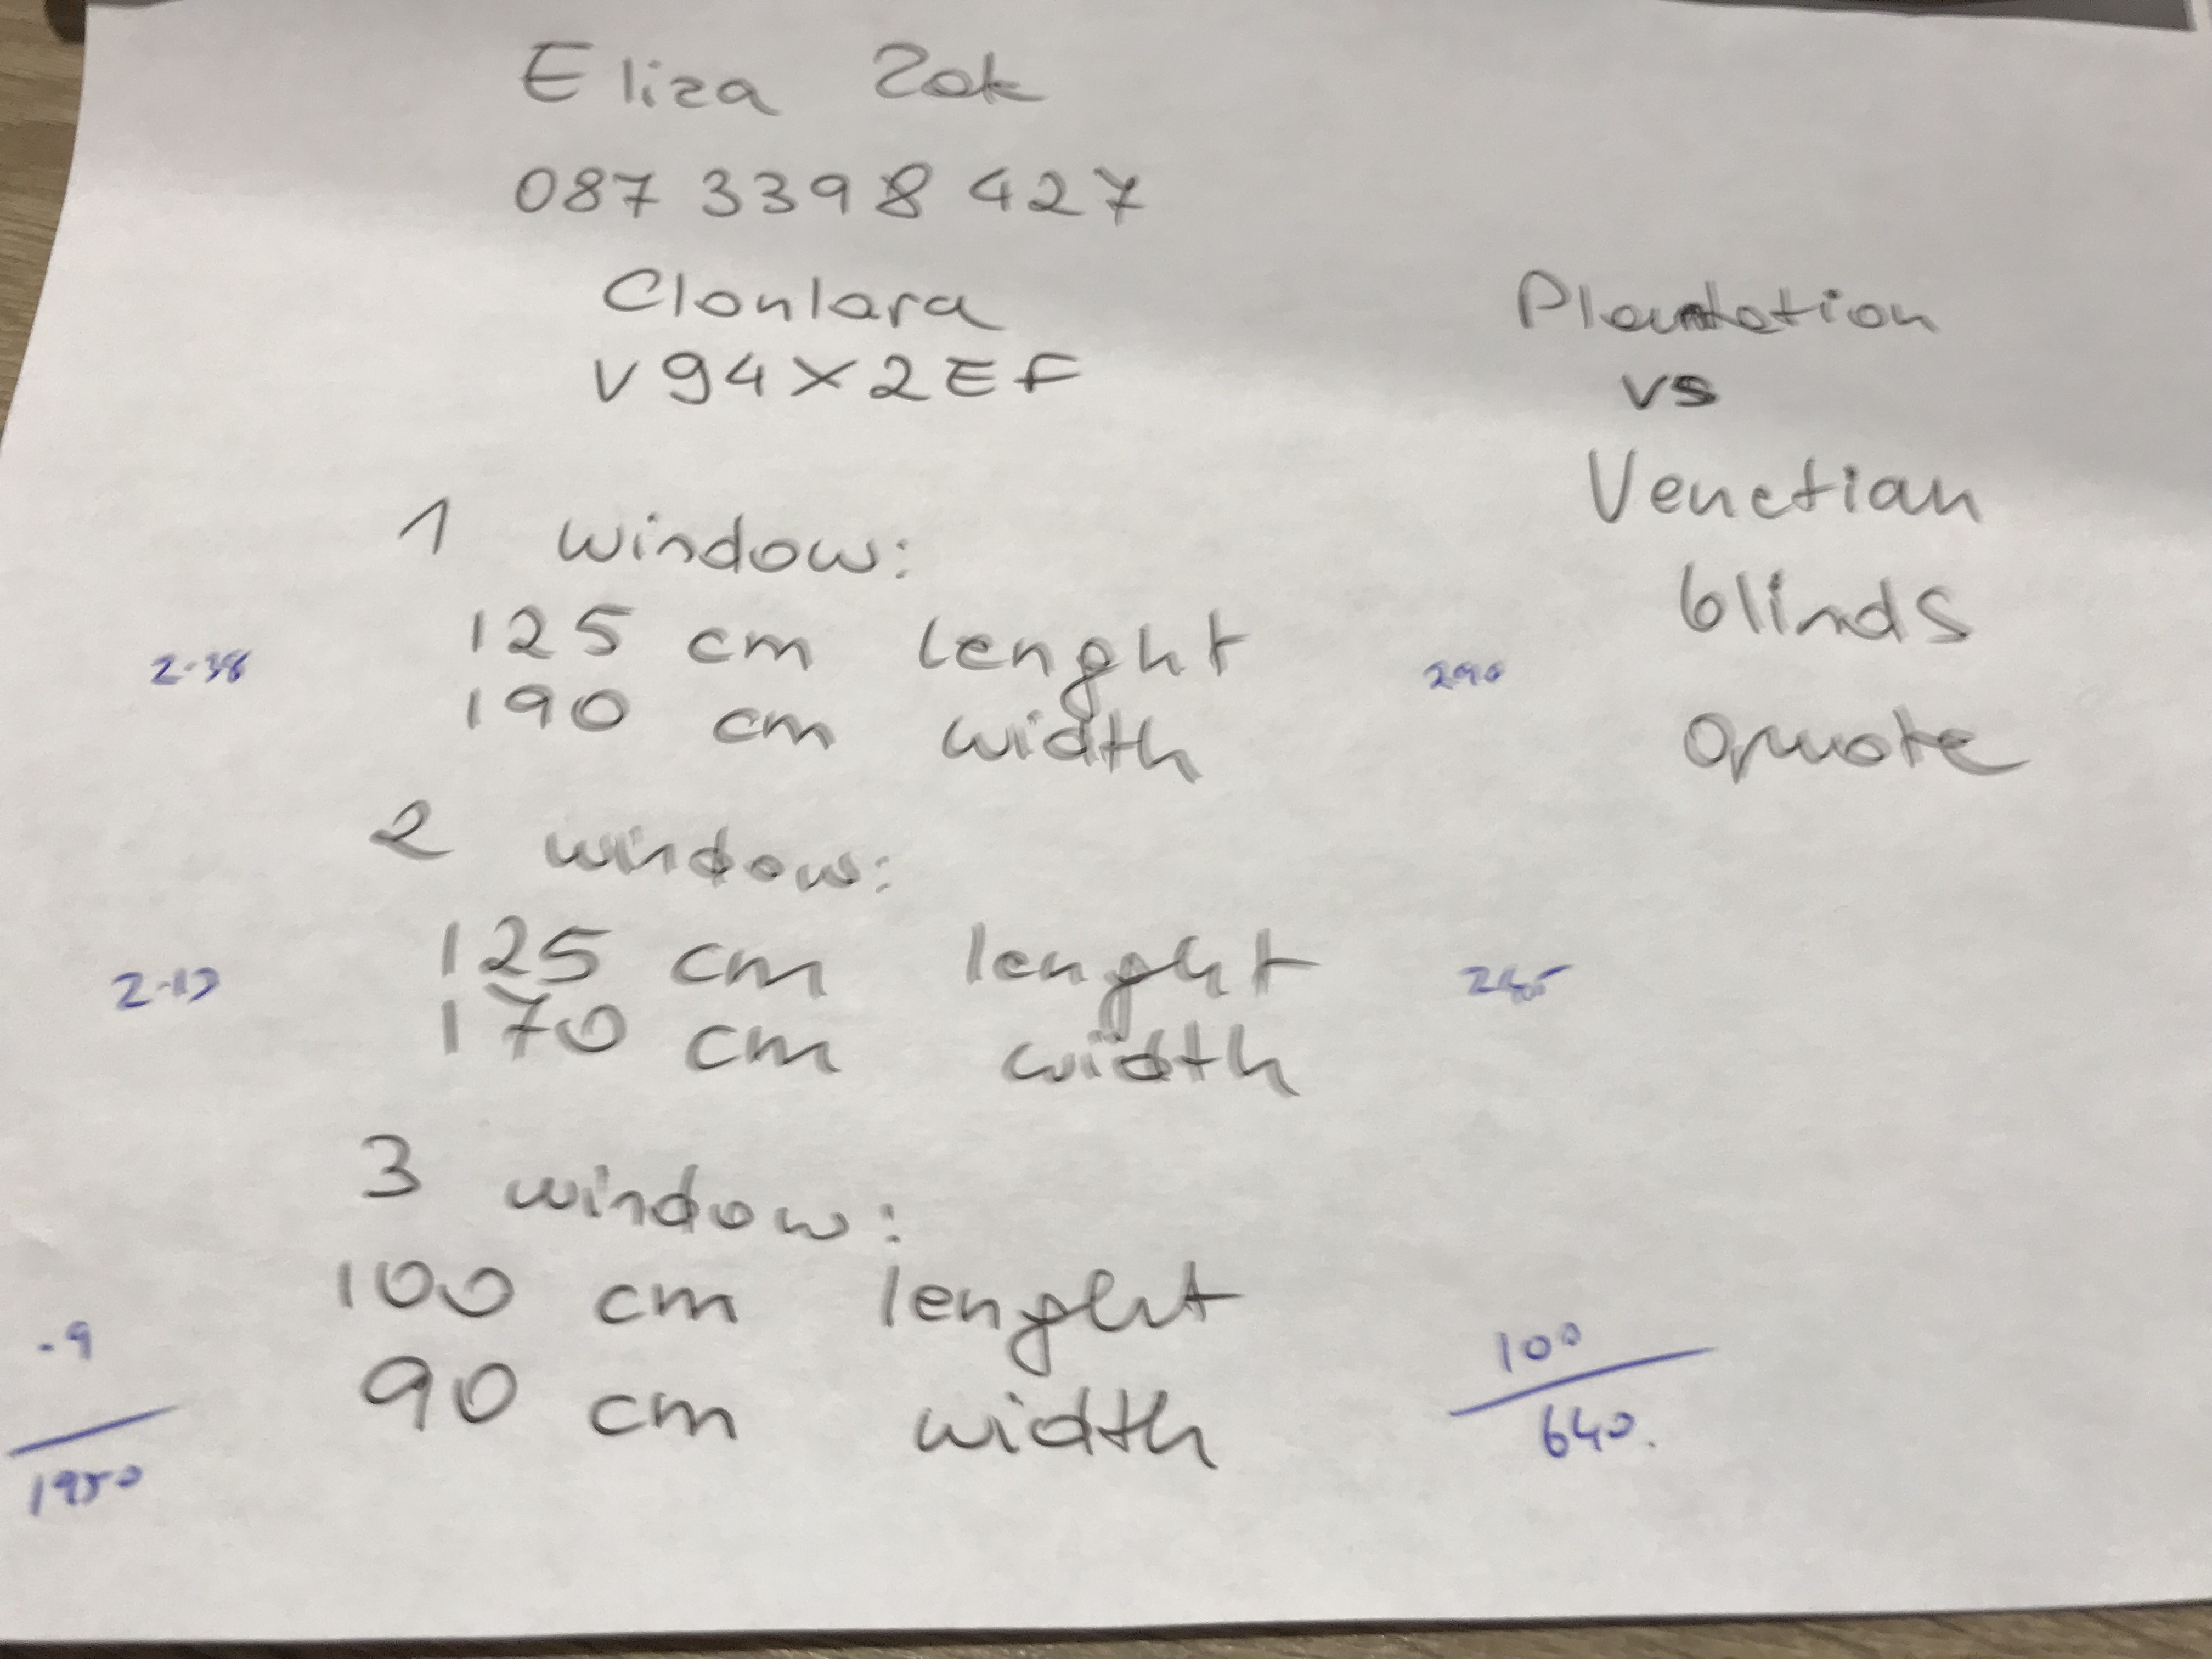 Eliza Zak
087 3398 427
Clonlara
V94X2EF
Plantation
vs
Venetian
blinds
quote
1 window:
125 cm lenght
190 cm width
2.38
290
2 window:
125 cm lenght
170 cm width
2.13
3 window:
100 cm lenght
90 cm width
.9
1950
100
640.